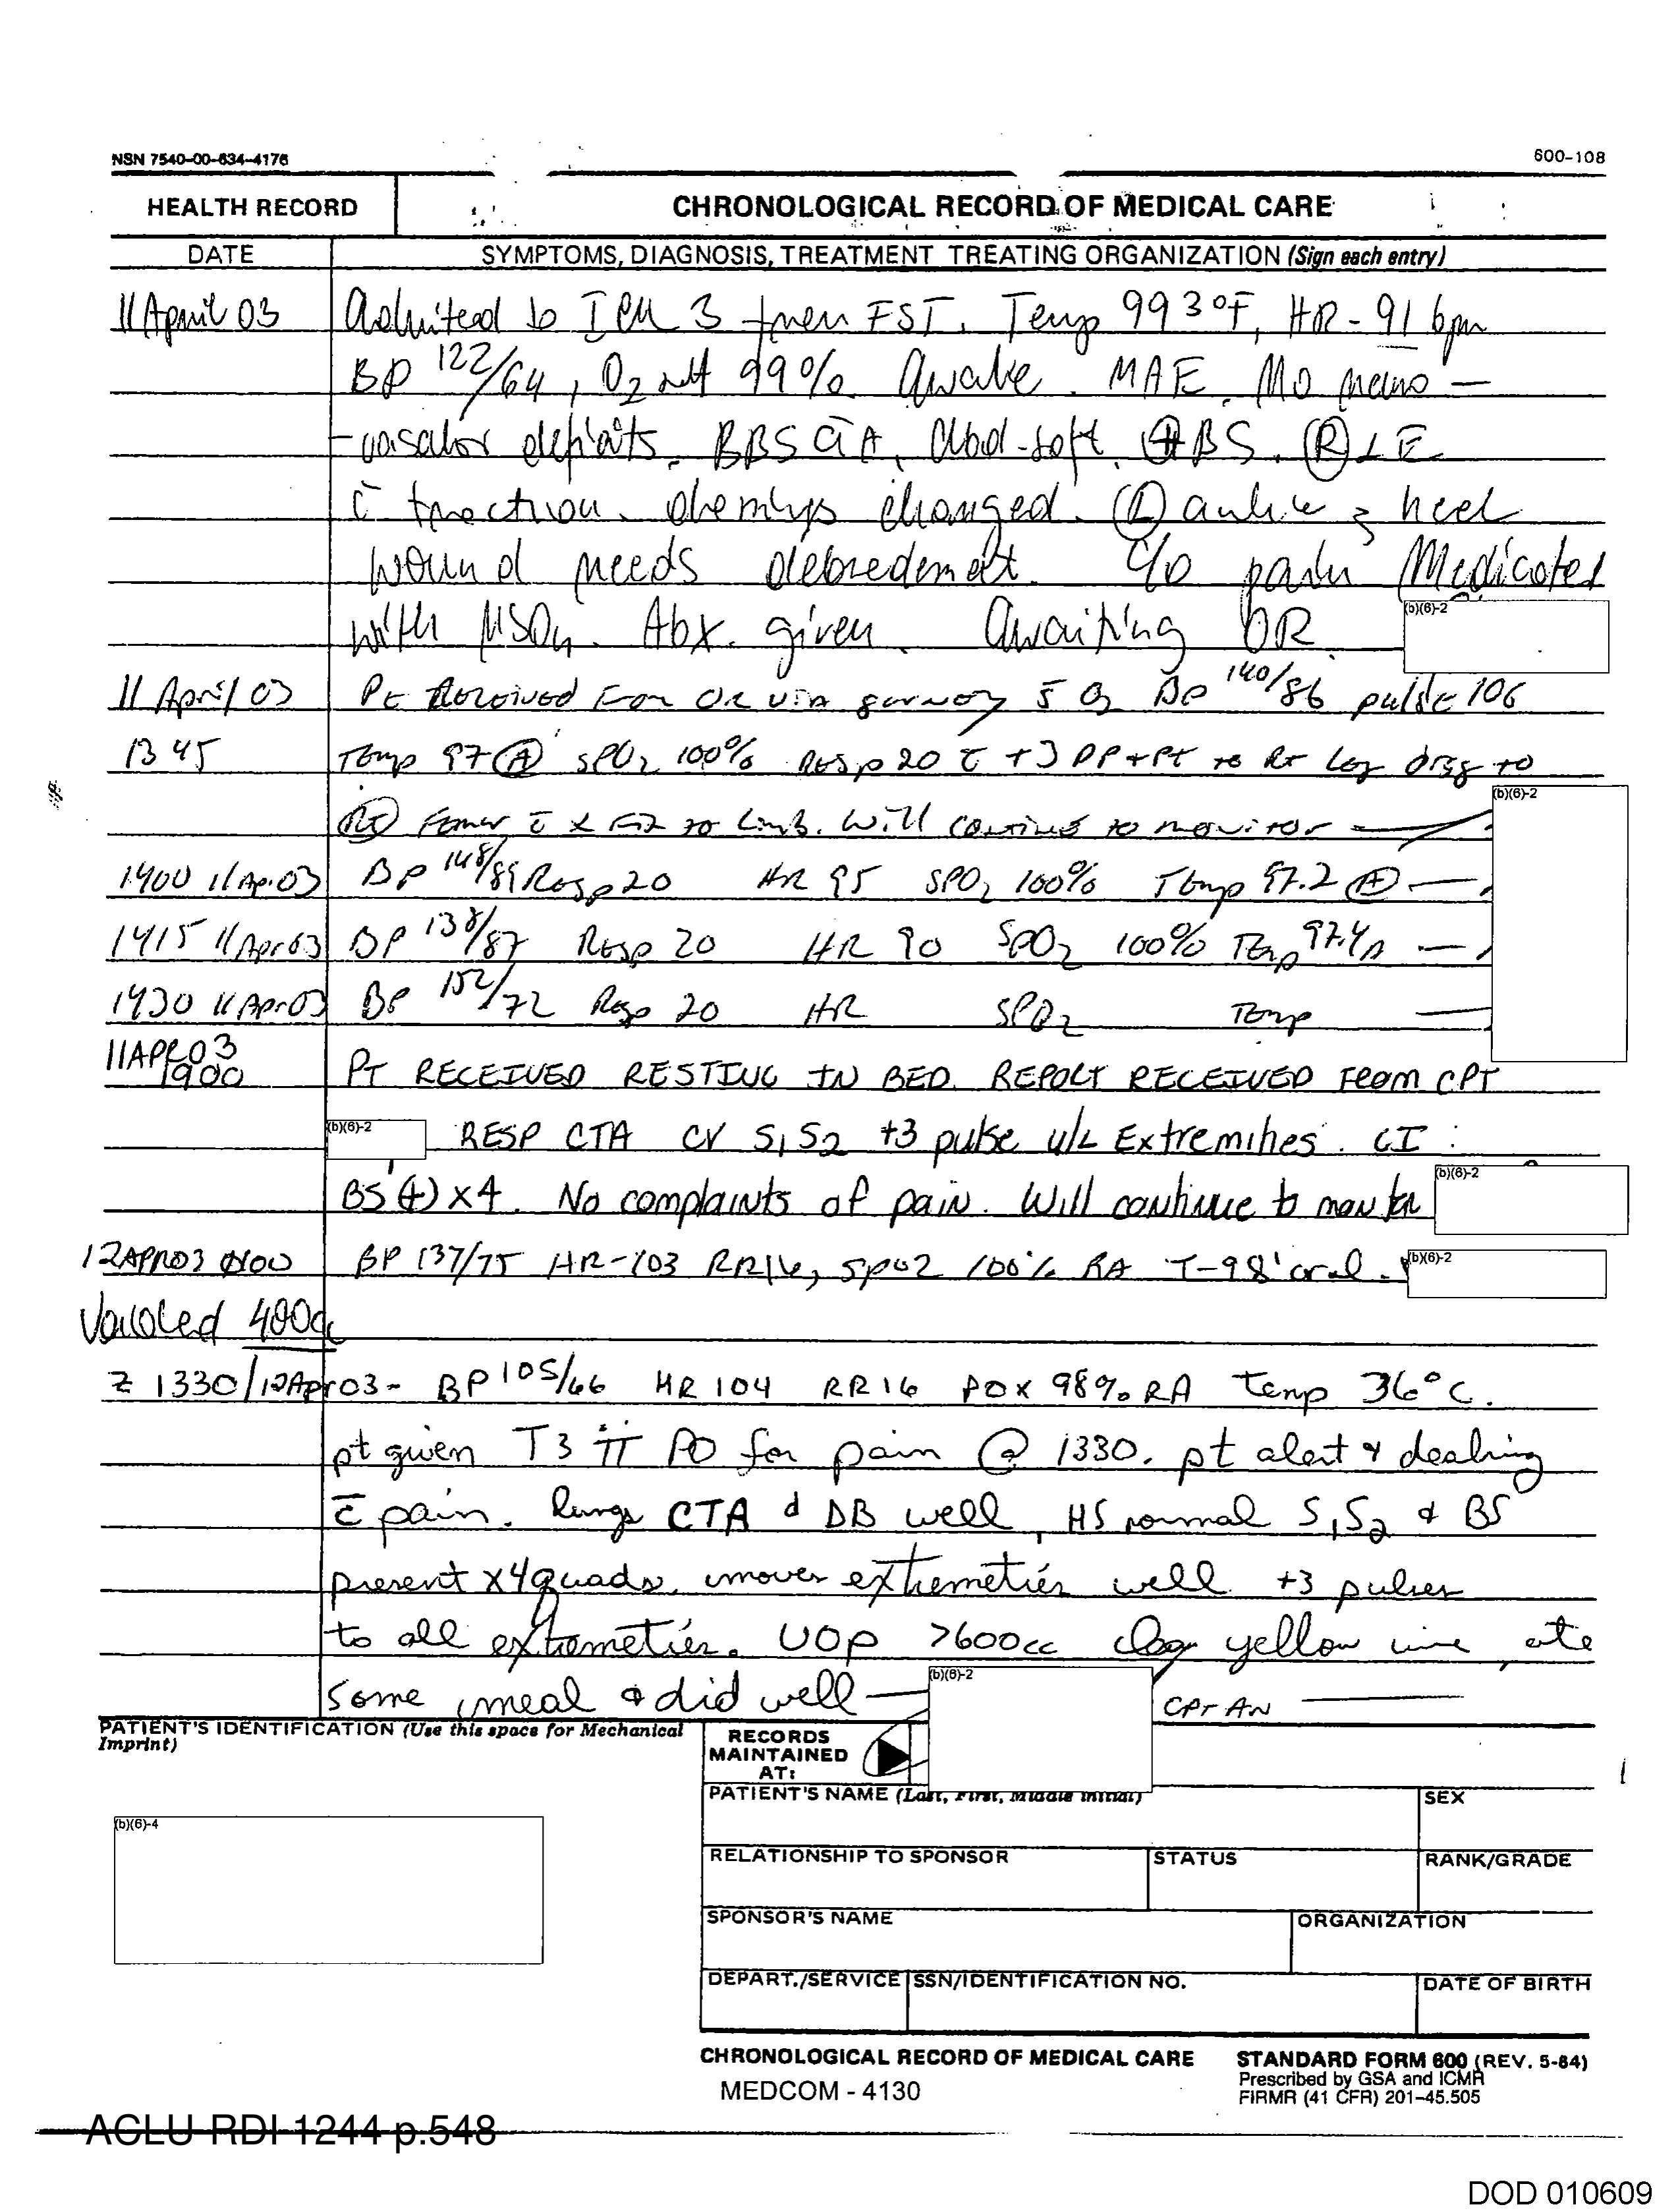 NSN 7540-00-634-4176
600-108
HEALTH RECORD
CHRONOLOGICAL RECORD OF MEDICAL CARE
DATE
SYMPTOMS, DIAGNOSIS, TREATMENT TREATING ORGANIZATION (Sign each entry)
11 April 03 Admitted to ICU 3 from FST. Temp 99 3 °F, HR - 91 bpm
BP 122/64, O2 sat 99% Awake. MAE. No neuro -
- vascular deficits. BBS CTA, Abd-soft, ⊕BS. Ⓡ LE
c̄ traction. changed. Ⓛ ankle & heel
wound needs debredement. c/o pain Medicated
with MSO4. Abx. given. Awaiting OR.
(b)(6)-2
11 April 03 Pt Received From OR via gurney s̄ O2 BP 140/86 pulse 106
1345 Temp 97 Ⓐ SPO2 100% Resp 20 c̄ +3 DP + PT to Rt Leg drsg to
(b)(6)-2
(Rt) Femur, c̄ to Limb. Will continue to monitor
1400 11 Apr 03 BP 148/89 Resp 20 HR 95 SPO2 100% Temp 97.2 Ⓐ
1415 11 Apr 03 BP 138/87 Resp 20 HR 90 SPO2 100% Temp 97.4 A
1430 11 Apr 03 BP 152/72 Resp 20 HR SPO2 Temp
11APR03
1900 PT RECEIVED RESTING IN BED. REPORT RECEIVED FROM CPT
(b)(6)-2 RESP CTA CV S1S2 +3 pulse u/L Extremities. GI :
BS (+) x4. No complaints of pain. Will continue to monitor (b)(6)-2
12APR03 0100 BP 137/75 HR-103 RR16, SpO2 100% RA T-98' oral. (b)(6)-2
Voided 400cc
Z 1330/12Apr03- BP 105/66 HR 104 RR 16 POX 98% RA Temp 36°C.
pt given T3 ii PO for pain @ 1330. pt alert & dealing
c̄ pain. lungs CTA & DB well, HS normal S1S2 & BS
present x4quads, moves extremeties well +3 pulses
to all extremeties. UOP >600cc clear yellow urine, ate
some meal & did well (b)(6)-2 CPT AN
PATIENT'S IDENTIFICATION (Use this space for Mechanical
Imprint)
RECORDS
MAINTAINED
AT:
PATIENT'S NAME (Last, First, Middle Initial)
SEX
(b)(6)-4
RELATIONSHIP TO SPONSOR
STATUS
RANK/GRADE
SPONSOR'S NAME
ORGANIZATION
DEPART./SERVICE
SSN/IDENTIFICATION NO.
DATE OF BIRTH
CHRONOLOGICAL RECORD OF MEDICAL CARE
STANDARD FORM 600 (REV. 5-84)
Prescribed by GSA and ICMR
FIRMR (41 CFR) 201-45.505
MEDCOM - 4130
ACLU RDI 1244 p.548
DOD 010609